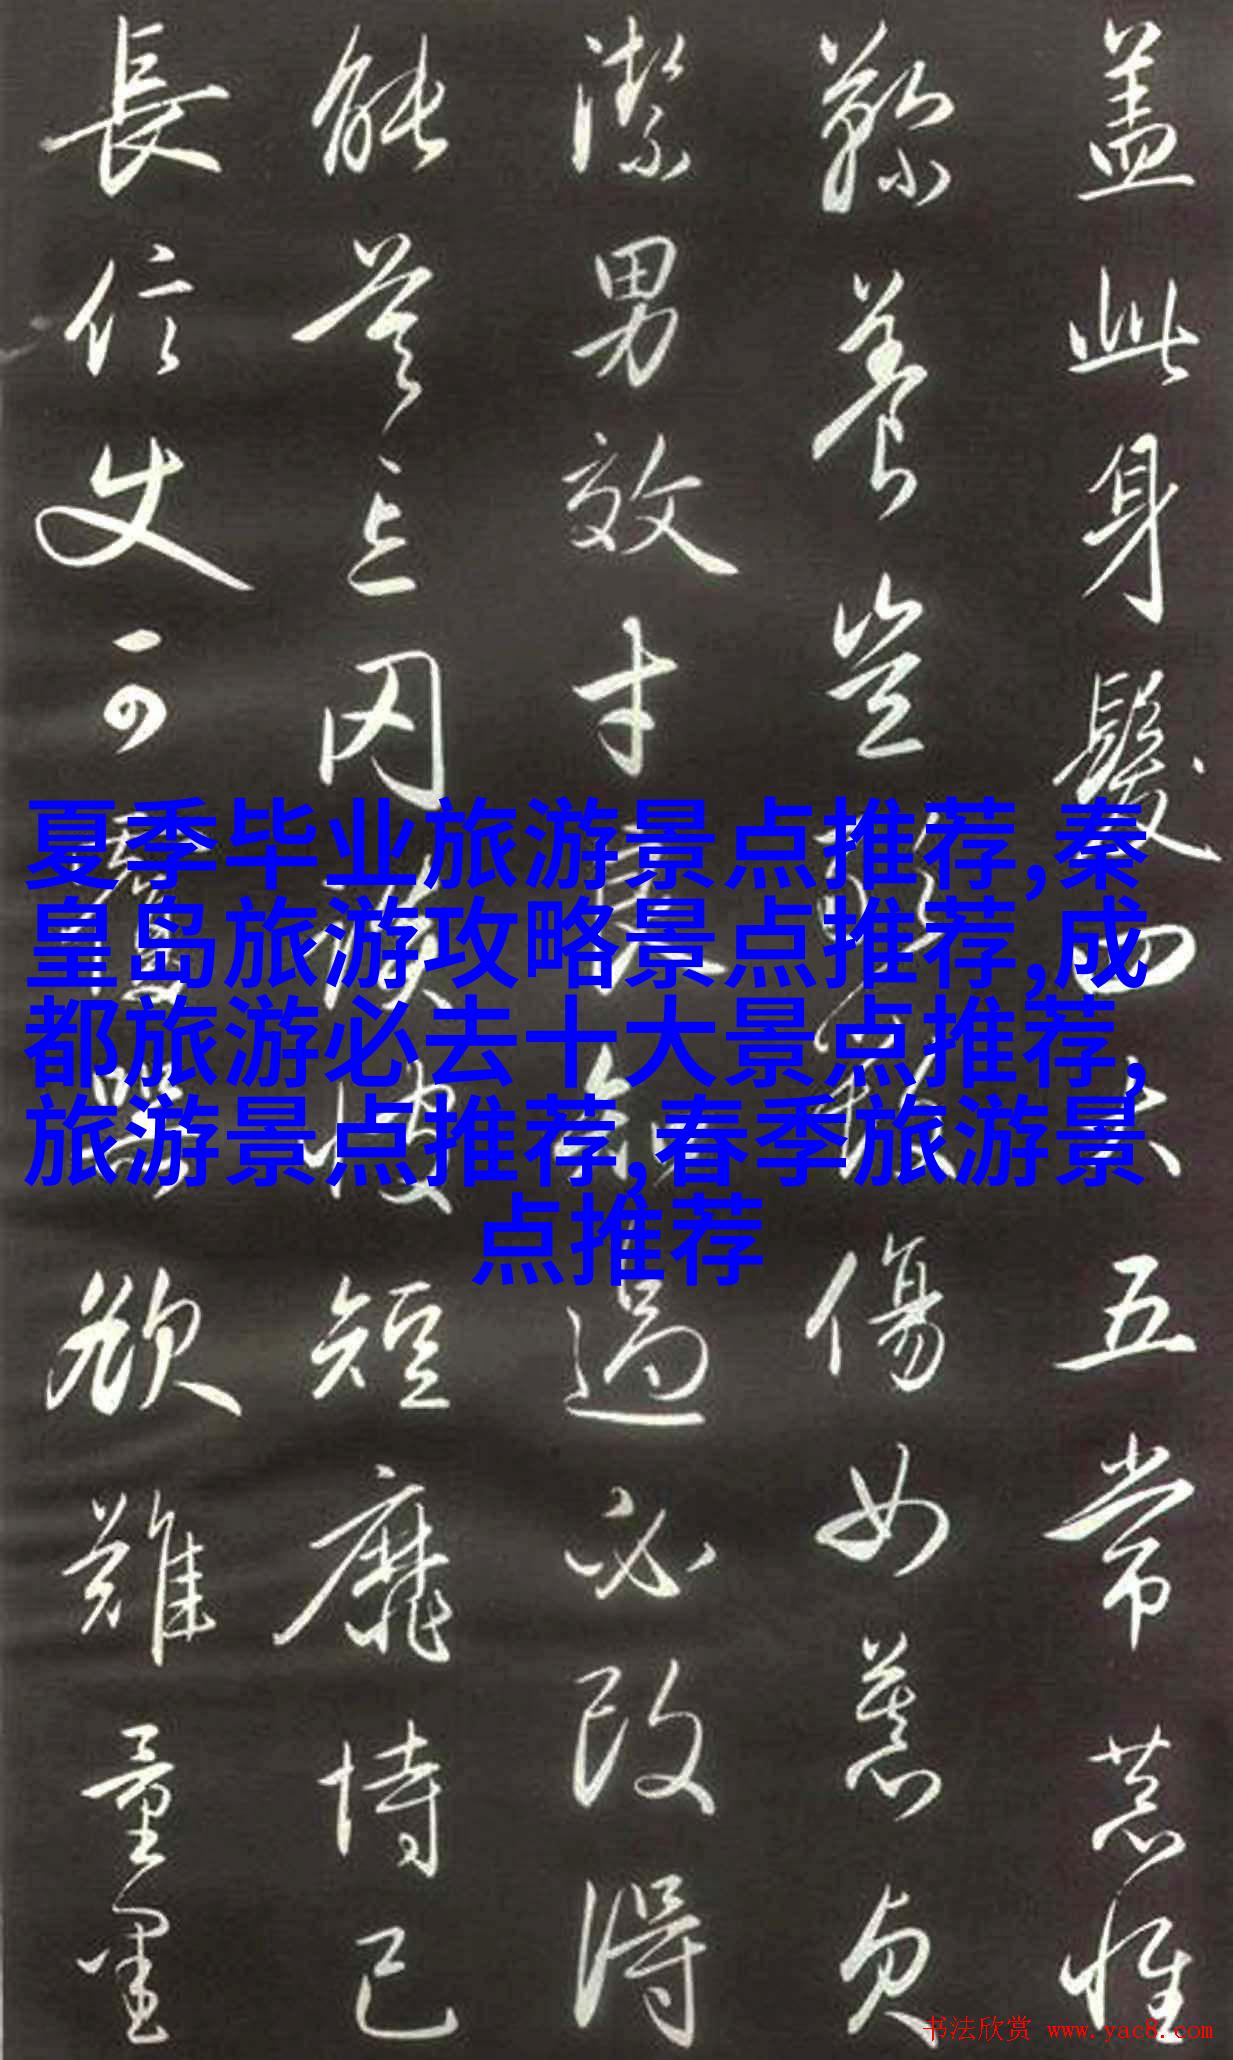 盖此身髮四大五常恭惟
鞠養豈敢毀傷女慕貞
潔男效才良知過必改得
能莫忘罔談彼短靡恃己
長信使可覆器欲難量墨
夏季毕业旅游景点推荐,秦
皇岛旅游攻略景点推荐,成
都旅游必去十大景点推荐,
旅游景点推荐,春季旅游景
点推荐
书法欣赏 www.yac8.com